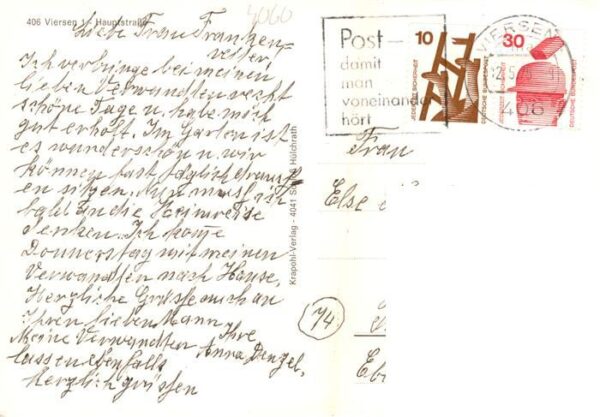 406 Viersen 1 - Hauptstraße
4060
Liebe Frau Franzen-
Ich verbringe bei meinen
lieben Verwandten recht
schöne Tage u. habe mich
gut erholt. Im Garten ist
es wunderschön u. wir
können fast täglich draus-
sen sitzen. Nun muß ich
bald an die Heimreise
denken. Ich komme
Donnerstag mit meinen
Verwandten nach Hause.
Herzliche Grüsse auch an
Ihren lieben Mann
Ihre
Meine Verwandten
Anna
lassen ebenfalls
herzlich grüssen
Krapohl-Verlag - 4041 Hülchrath
Post-
damit
man
voneinander
hört
10
JEDERZEIT SICHERHEIT
DEUTSCHE BUNDESPOST
30
DEUTSCHE BUNDESPOST
VIERSEN
406
Frau
Else
74